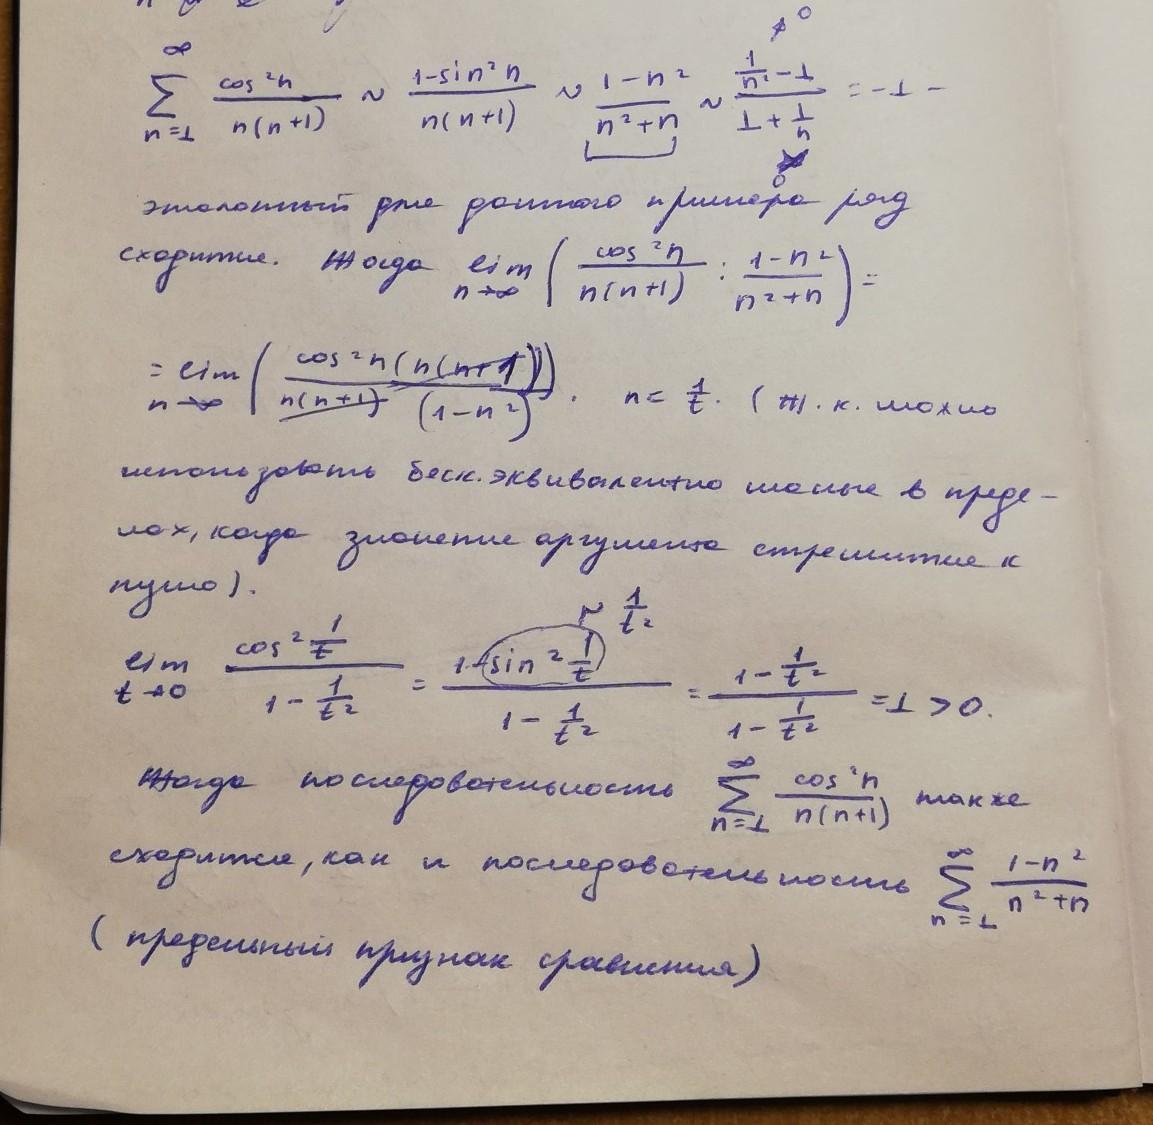 ∞
∑ cos²n / n(n+1) ~ 1-sin²n / n(n+1) ~ 1-n² / n²+n ~ 1/n² - 1 / 1 + 1/n = -1 -
n=1
эталонный для данного примера ряд
сходится. Тогда lim n→∞ ( cos²n / n(n+1) : 1-n² / n²+n ) =
= lim n→∞ ( cos²n (n(n+1)) / n(n+1) (1-n²) ). n = 1/t. (т.к. можно
использовать беск. эквивалентно малые в преде-
лах, когда значение аргумента стремится к
нулю).
lim t→0 cos² 1/t / 1 - 1/t² = 1 - sin² 1/t / 1 - 1/t² = 1 - 1/t² / 1 - 1/t² = 1 > 0.
~ 1/t²
Тогда последовательность ∞ ∑ n=1 cos²n / n(n+1) также
сходится, как и последовательность ∞ ∑ n=1 1-n² / n²+n
(предельный признак сравнения)